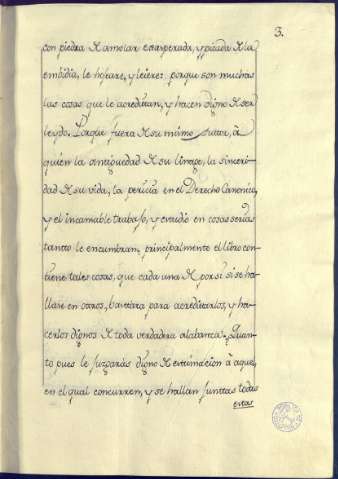 3.
con piedra de amolar exasperada, y picada de la
embidia, le hojeare, y leieres: porque son muchas
las cosas que le acreditan, y hacen digno de ser
leydo. Porque fuera de su mismo Auttor, à
quien la antiguedad de su linage, la sinceri-
dad de su vida, la pericia en el Derecho Canonico,
y el incansable trabajo, y estudio en cosas serias
tantto le encumbran, principalmente el libro con-
tiene tales cosas, que cada una de por si si se ha-
llase en otros, bastara para acreditarlos, y ha-
cerlos dignos de toda verdadera alabanza. Quan-
to pues le juzgaràs digno de estimacion à aquel,
en el qual concurren, y se hallan junttas todas
estas